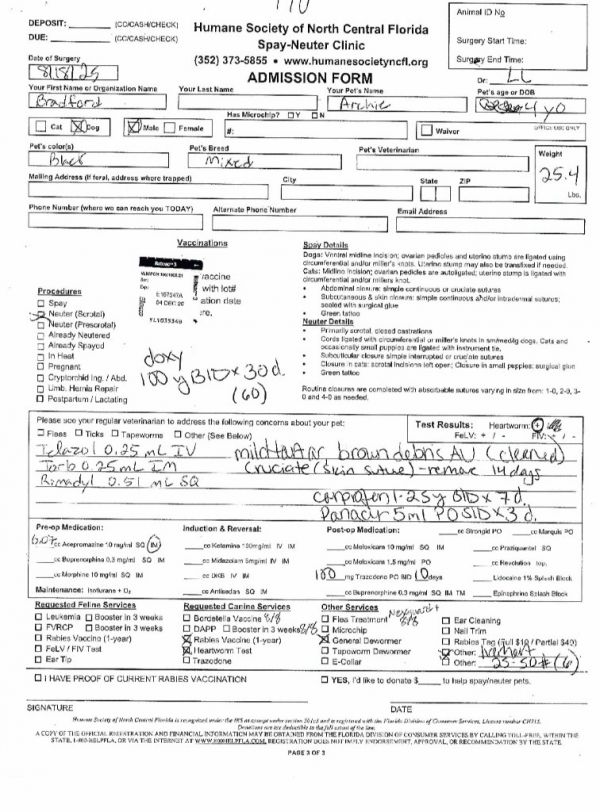 DEPOSIT: (CC/CASH/CHECK)
DUE: (CC/CASH/CHECK)
Humane Society of North Central Florida
Spay-Neuter Clinic
(352) 373-5855 • www.humanesocietyncfl.org
ADMISSION FORM
Animal ID No
Surgery Start Time:
Surgery End Time:
Date of Surgery
8/18/25
Dr: LL
Your First Name or Organization Name
Your Last Name
Your Pet's Name
Pet's age or DOB
Bradford
Archie
4 yo
Cat
Dog
Male
Female
Has Microchip? Y N
#:
Waiver
OFFICE USE ONLY
Pet's color(s)
Pet's Breed
Pet's Veterinarian
Weight
Black
Mixed
25.4
Lbs.
Mailing Address (If feral, address where trapped)
City
State
ZIP
Phone Number (where we can reach you TODAY)
Alternate Phone Number
Email Address
Vaccinations
Procedures
Spay
Neuter (Scrotal)
Neuter (Prescrotal)
Already Neutered
Already Spayed
In Heat
Pregnant
Cryptorchid Ing. / Abd.
Umb. Hernia Repair
Postpartum / Lactating
doxy
100 BID x 30 d.
(60)
Spay Details
Dogs: Ventral midline incision; ovarian pedicles and uterine stump are ligated using
circumferential and/or miller's knots. Uterine stump may also be transfixed if needed.
Cats: Midline incision; ovarian pedicles are autoligated; uterine stump is ligated with
circumferential and/or millers knot.
• Abdominal closure: simple continuous or cruciate sutures
• Subcutaneous & skin closure: simple continuous and/or intradermal sutures;
sealed with surgical glue
• Green tattoo
Neuter Details
• Primarily scrotal, closed castrations
• Cords ligated with circumferential or miller's knots in sm/med/lg dogs. Cats and
occasionally small puppies are ligated with instrument tie.
• Subcuticular closure simple interrupted or cruciate sutures
• Closure in cats: scrotal incisions left open; Closure in small puppies: surgical glue
• Green tattoo
Routine closures are completed with absorbable sutures varying in size from: 1-0, 2-0, 3-
0 and 4-0 as needed.
Please see your regular veterinarian to address the following concerns about your pet:
Fleas Ticks Tapeworms Other (See Below)
Test Results: Heartworm: +
FeLV: + / - FIV: + / -
Telazol 0.25 mL IV
mild tartar, brown debris AU (cleaned)
Torb 0.25 mL IM
Cruciate (skin suture) - remove 14 days
Rimadyl 0.51 mL SQ
carprofen 1.25 BID x 7 d.
Panacur 5ml PO SID x 3 d.
Pre-op Medication:
Induction & Reversal:
Post-op Medication:
cc Strongid PO
cc Marquis PO
cc Acepromazine 10 mg/ml SQ IM
cc Ketamine 100mg/ml IV IM
cc Meloxicam 10 mg/ml SQ IM
cc Praziquantel SQ
cc Buprenorphine 0.3 mg/ml SQ IM
cc Midazolam 5mg/ml IV IM
cc Meloxicam 1.5 mg/ml PO
cc Revolution top.
cc Morphine 10 mg/ml SQ IM
cc DKB IV IM
100 mg Trazodone PO BID 10 days
Lidocaine 1% Splash Block
Maintenance: Isoflurane + O₂
cc Antisedan SQ IM
cc Buprenorphine 0.3 mg/ml SQ IM TM
Epinephrine Splash Block
Requested Feline Services
Leukemia Booster in 3 weeks
FVRCP Booster in 3 weeks
Rabies Vaccine (1-year)
FeLV / FIV Test
Ear Tip
Requested Canine Services
Bordetella Vaccine 8/8
DAPP Booster in 3 weeks 8/8
Rabies Vaccine (1-year)
Heartworm Test
Trazodone
Other Services
Flea Treatment Nexgard+ 8/8
Microchip
General Dewormer
Tapeworm Dewormer
E-Collar
Ear Cleaning
Nail Trim
Rabies Tag (Full $10 / Partial $40)
Other:
Other: 25-50# (6)
I HAVE PROOF OF CURRENT RABIES VACCINATION
YES, I'd like to donate $ to help spay/neuter pets.
SIGNATURE
DATE
Humane Society of North Central Florida is recognized under the IRS as exempt under section 501c3 and is registered with the Florida Division of Consumer Services, License number CH713.
Donations are tax deductible to the full extent of the law.
A COPY OF THE OFFICIAL REGISTRATION AND FINANCIAL INFORMATION MAY BE OBTAINED FROM THE FLORIDA DIVISION OF CONSUMER SERVICES BY CALLING TOLL-FREE, WITHIN THE
STATE, 1-800-HELPFLA, OR VIA THE INTERNET AT WWW.800HELPFLA.COM. REGISTRATION DOES NOT IMPLY ENDORSEMENT, APPROVAL, OR RECOMMENDATION BY THE STATE.
PAGE 3 OF 3